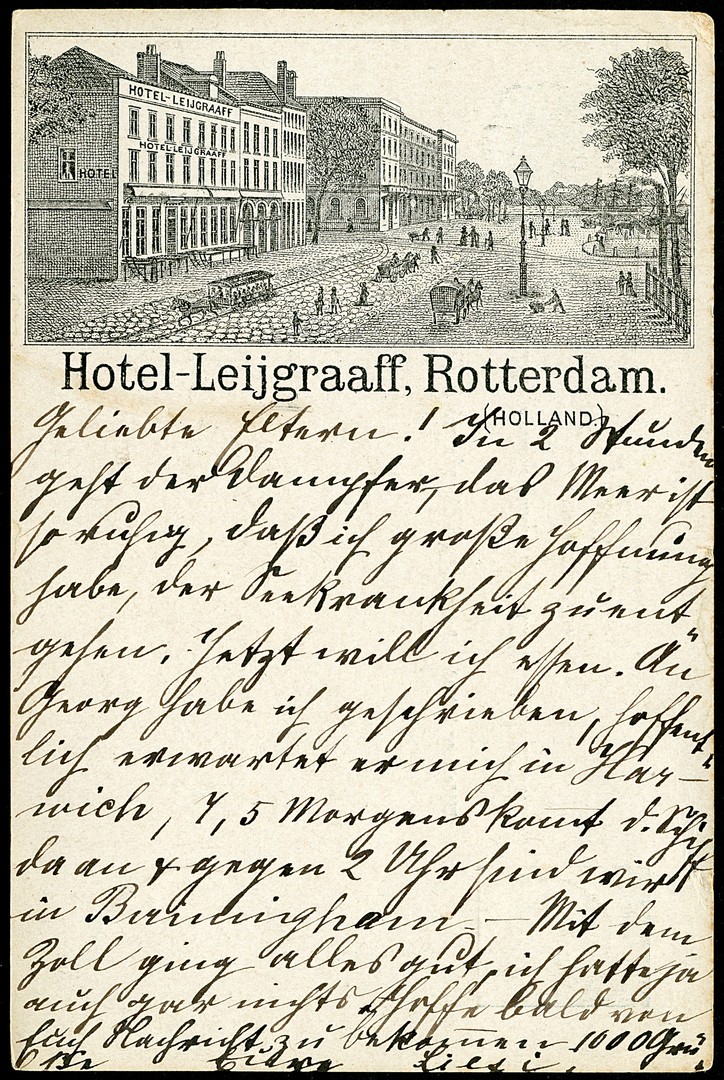 HOTEL-LEIJGRAAFF
HOTEL-LEIJGRAAFF
HOTEL
Hotel-Leijgraaff, Rotterdam.
(HOLLAND.)
Geliebte Eltern! In 2 Stunden
geht der Dampfer, das Meer ist
so ruhig, daß ich große Hoffnung
habe, der Seekrankheit zu ent
gehen. Jetzt will ich essen. An
Georg habe ich geschrieben, hoffent-
lich erwartet er mich in Har-
wich, 7,5 Morgens komt d. Schiff
da an & gegen 2 Uhr sind wir
in Birmingham. – Mit dem
Zoll ging alles gut, ich hatte ja
auch gar nichts. Hoffe bald von
Euch Nachricht zu bekommen 1000 Grü-
ße Eure